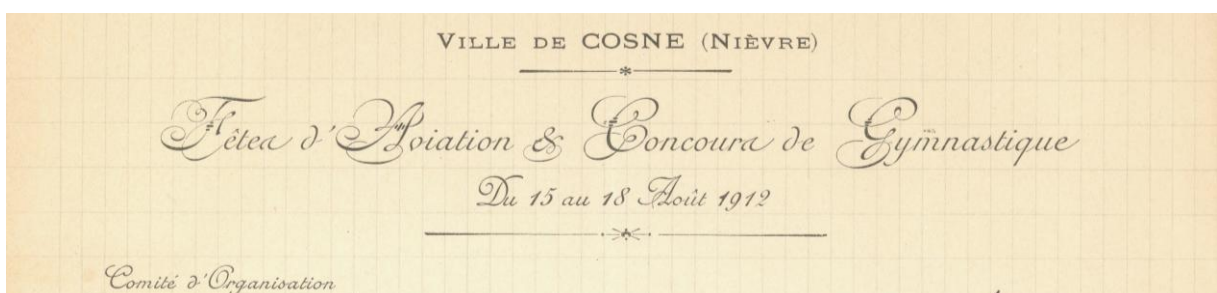 VILLE DE COSNE (NIÈVRE)
Fêtes d'Aviation & Concours de Gymnastique
Du 15 au 18 Août 1912
Comité d'Organisation